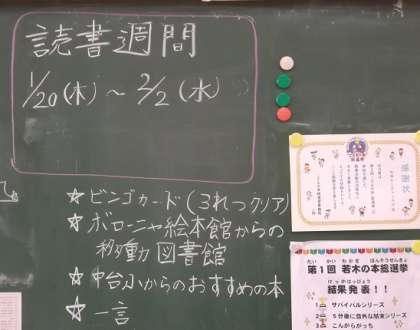 読書週間
1/20(木)~2/2(水)
☆ビンゴカード(3れつクリア)
☆ボローニャ絵本館からの
移動図書館
☆中台小からのおすすめの本
☆一言
感謝状
だい かい わかぎ ほんそうせんきょ
第1回 若木の本総選挙
けっかはっぴょう
結果発表!!
1 サバイバルシリーズ
2 5分後に意外な結末シリーズ
こんがらがっち